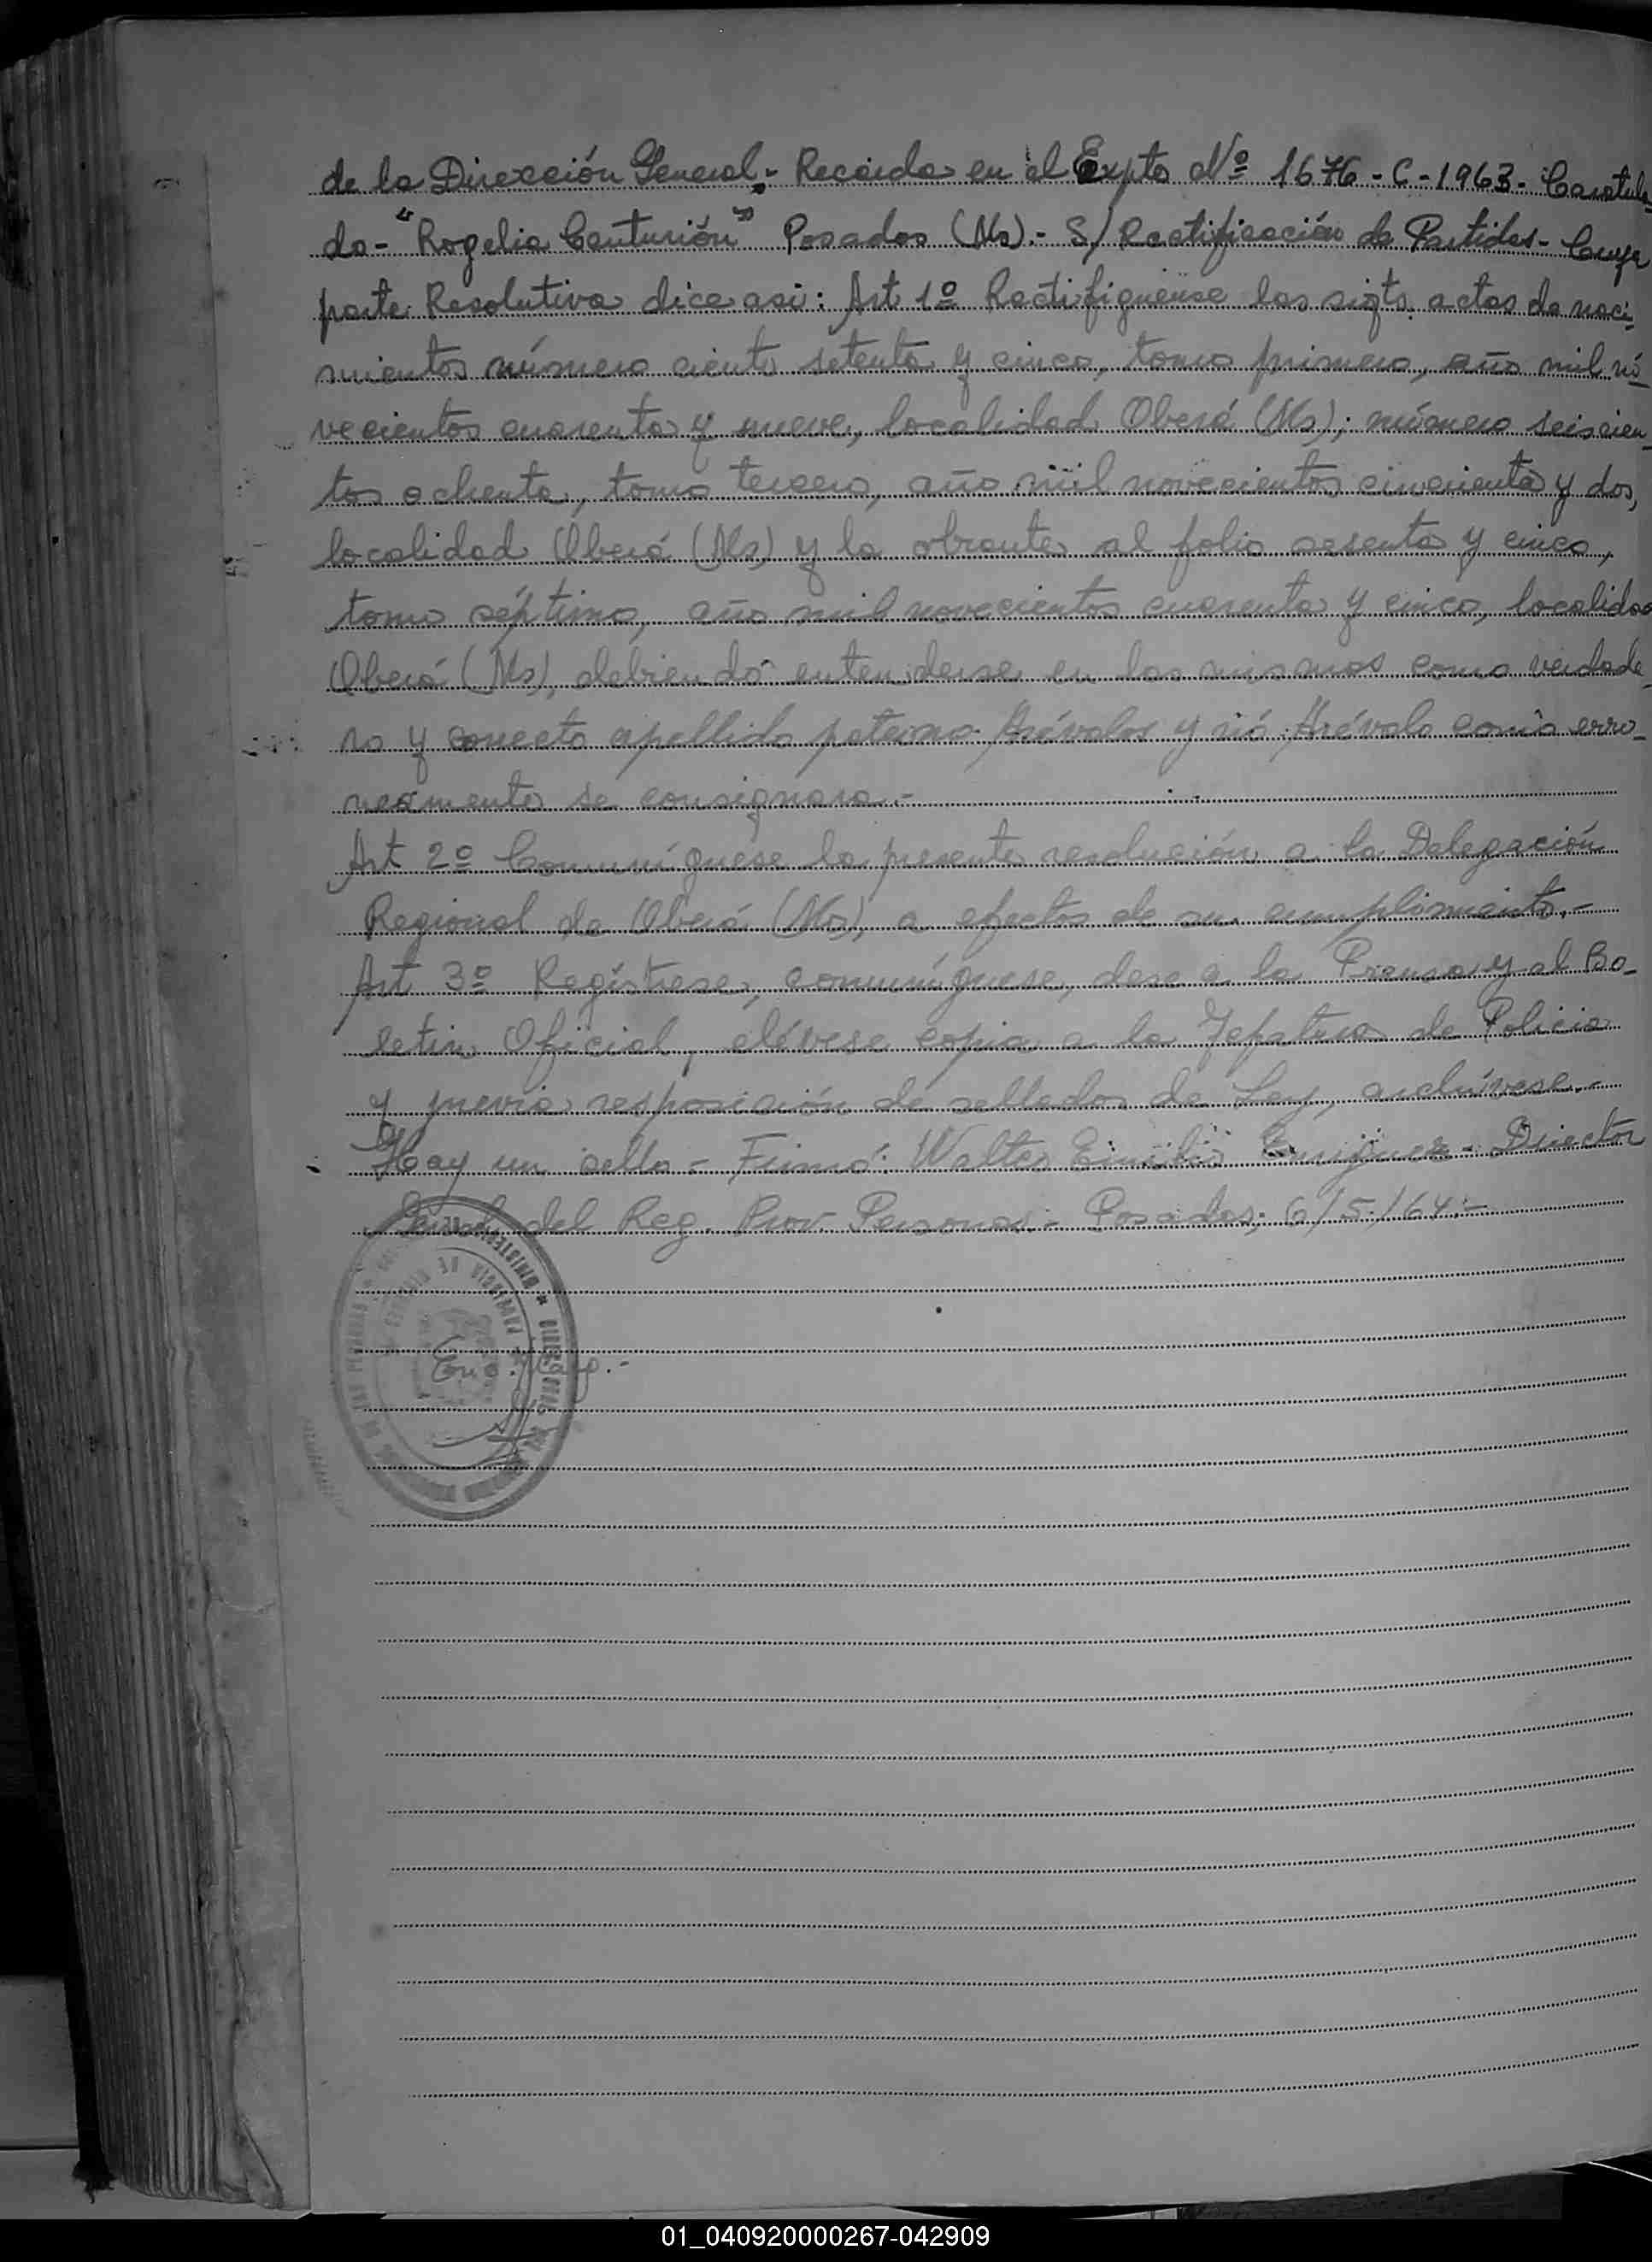 de la Dirección General.- Recaida en el Expto Nº 1676-C-1963- Caratula-
do- "Rogelia Centurión" Posadas (Ms).- S/ Rectificación de Partidas- Cuya
parte Resolutiva dice asi: Art 1º Rectifiquense las sigts. actas de naci-
mientos número ciento setenta y cinco, tomo primero, año mil no-
vecientos cuarenta y nueve, localidad Oberá (Ms); número seiscien-
tos ochenta, tomo tercero, año mil novecientos cincuenta y dos,
localidad Oberá (Ms) y la obrante al folio sesenta y cinco,
tomo séptimo, año mil novecientos cuarenta y cinco, localidad
Oberá (Ms), debiendo entenderse en las mismas como verdade-
ro y correcto apellido paterno Arévalos y nó Arévalo como erro-
neamente se consignara.-
Art 2º Comuníquese la presente resolución a la Delegación
Regional de Oberá (Ms), a efectos de su cumplimiento.-
Art 3º Regístrese, comuníquese, dese a la Prensa y al Bo-
letin Oficial, elévese copia a la Jefatura de Policia
y previa resposición de sellados de Ley, archívese.-
Hay un sello - Firmó: Walter Emilio Enriquez - Director
General del Reg. Prov. Personas - Posadas, 6/5/64.-
01_040920000267-042909